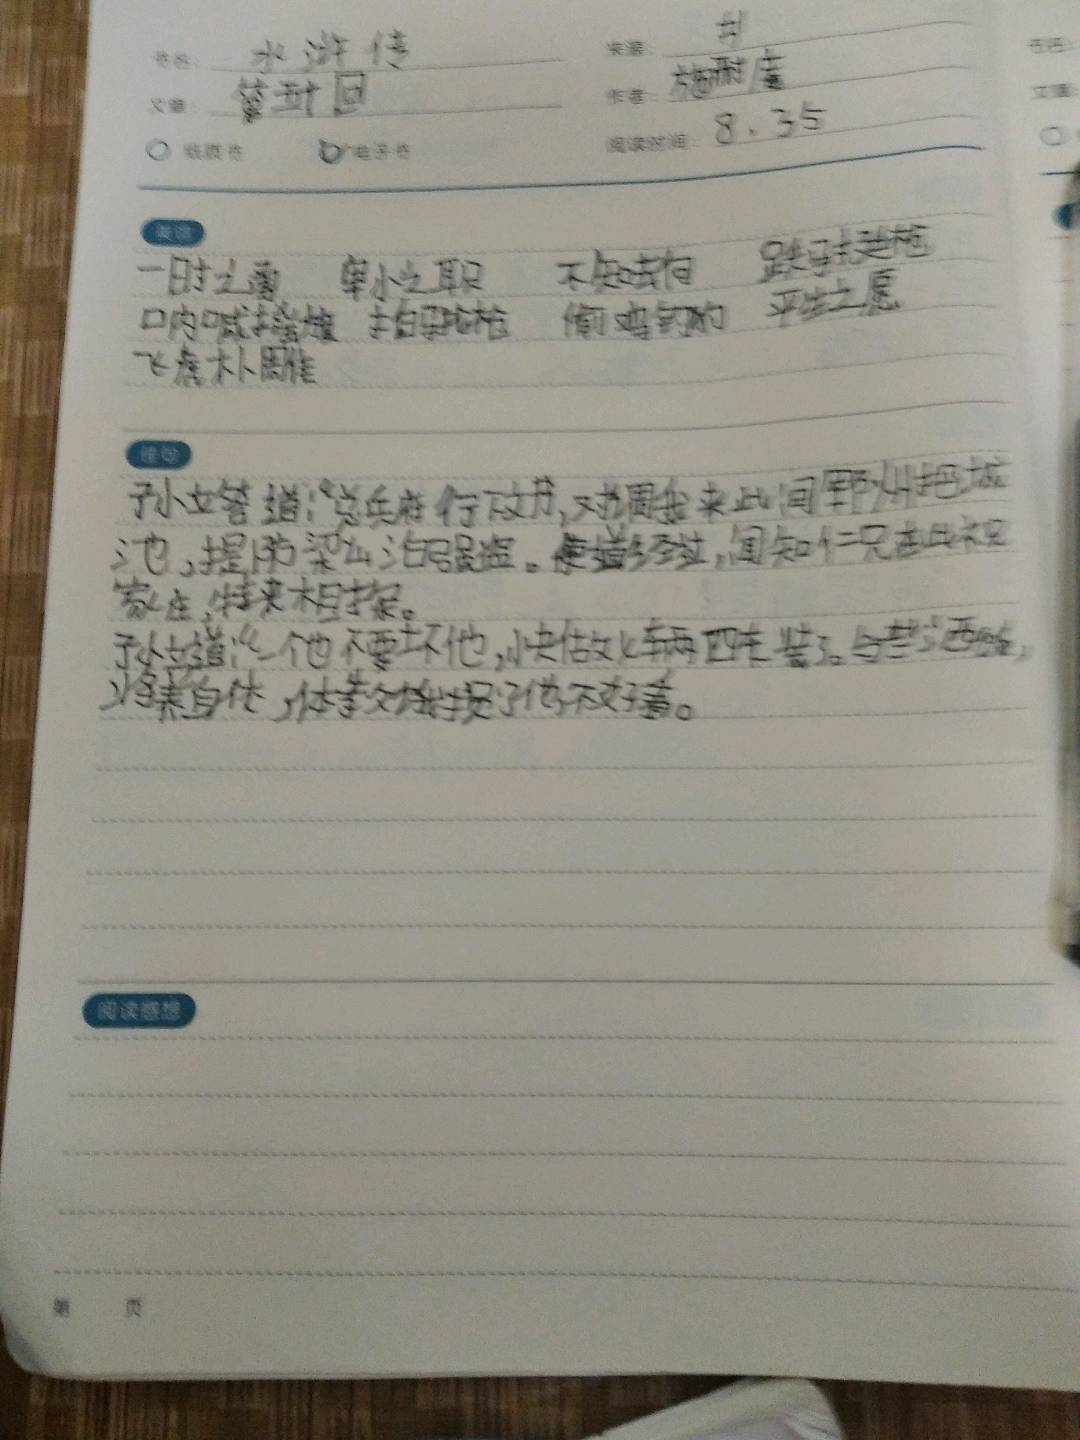 书名: 水浒传 来源: 书
文章: 第五十回 作者: 施耐庵
纸质书 电子书 阅读时间: 8.35
美词
一时之勇 卑小之职 不知去向 跃马挺枪
口内喊 拍马挺枪 偷鸡 平生之愿
飞虎
佳句
孙立答道:“总兵府行下文书,对调我来此间郓州把城
池,提防梁山泊强盗。便道经过,闻知仁兄在此祝
家庄,特来相探。
孙立道:“一个也不要坏他,快做七辆囚车装了。与些酒饭,
将养身体,休教饿损了他,不好看。
阅读感想
第 页